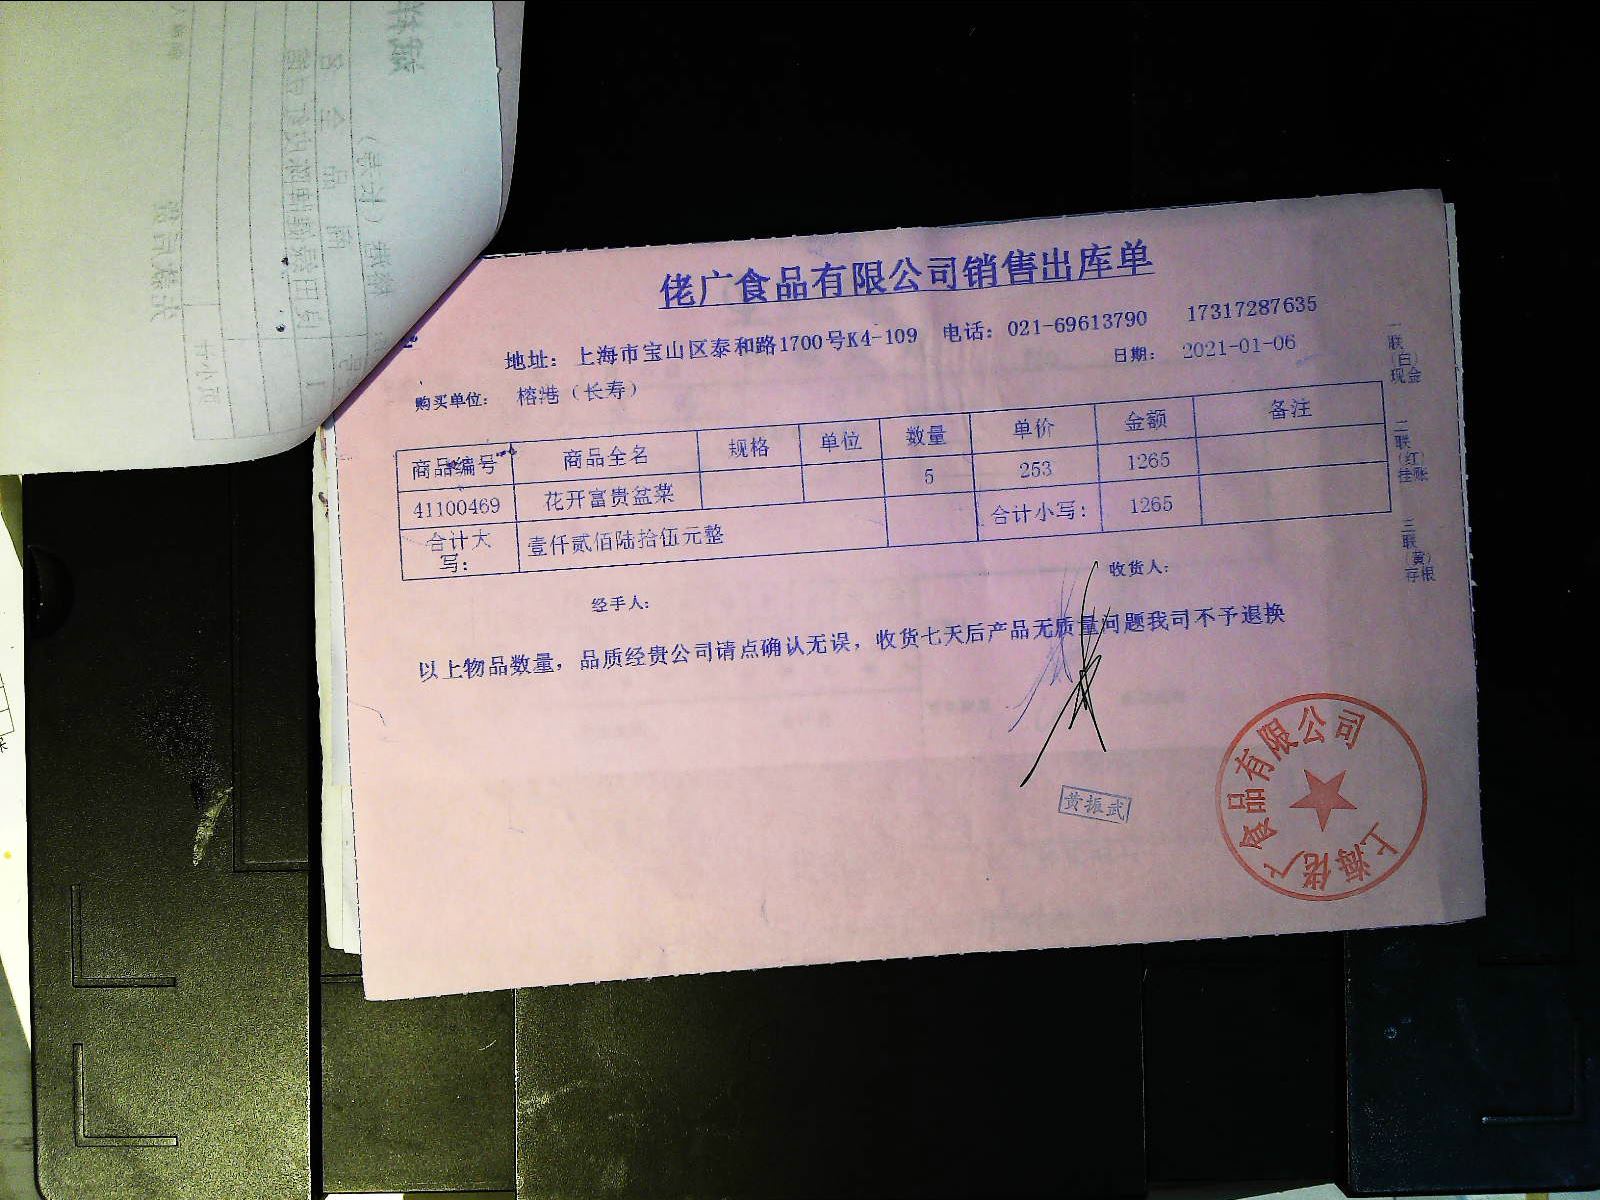 佬广食品有限公司销售出库单
地址: 上海市宝山区泰和路1700号K4-109 电话: 021-69613790 17317287635
日期: 2021-01-06
购买单位: 榕港（长寿）
商品编号 商品全名 规格 单位 数量 单价 金额 备注
41100469 花开富贵盆菜 5 253 1265
合计大写: 壹仟贰佰陆拾伍元整 合计小写: 1265
经手人: 收货人:
以上物品数量，品质经贵公司请点确认无误，收货七天后产品无质量问题我司不予退换
一联（白）现金
二联（红）挂账
三联（黄）存根
黄振武
上海佬广食品有限公司